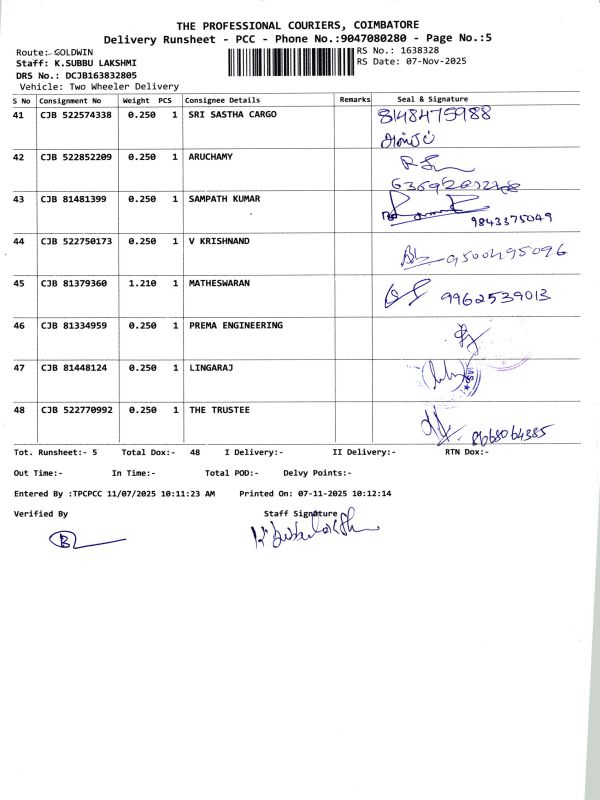 THE PROFESSIONAL COURIERS, COIMBATORE
Delivery Runsheet - PCC - Phone No.:9047080280 - Page No.:5
Route: GOLDWIN RS No.: 1638328
Staff: K.SUBBU LAKSHMI RS Date: 07-Nov-2025
DRS No.: DCJB163832805
Vehicle: Two Wheeler Delivery
S No Consignment No Weight PCS Consignee Details Remarks Seal & Signature
41 CJB 522574338 0.250 1 SRI SASTHA CARGO 8148475988
42 CJB 522852209 0.250 1 ARUCHAMY
43 CJB 81481399 0.250 1 SAMPATH KUMAR 9843375049
44 CJB 522750173 0.250 1 V KRISHNAND 9500495096
45 CJB 81379360 1.210 1 MATHESWARAN 9962539013
46 CJB 81334959 0.250 1 PREMA ENGINEERING
47 CJB 81448124 0.250 1 LINGARAJ
48 CJB 522770992 0.250 1 THE TRUSTEE 8668064385
Tot. Runsheet:- 5 Total Dox:- 48 I Delivery:- II Delivery:- RTN Dox:-
Out Time:- In Time:- Total POD:- Delvy Points:-
Entered By :TPCPCC 11/07/2025 10:11:23 AM Printed On: 07-11-2025 10:12:14
Verified By Staff Signature